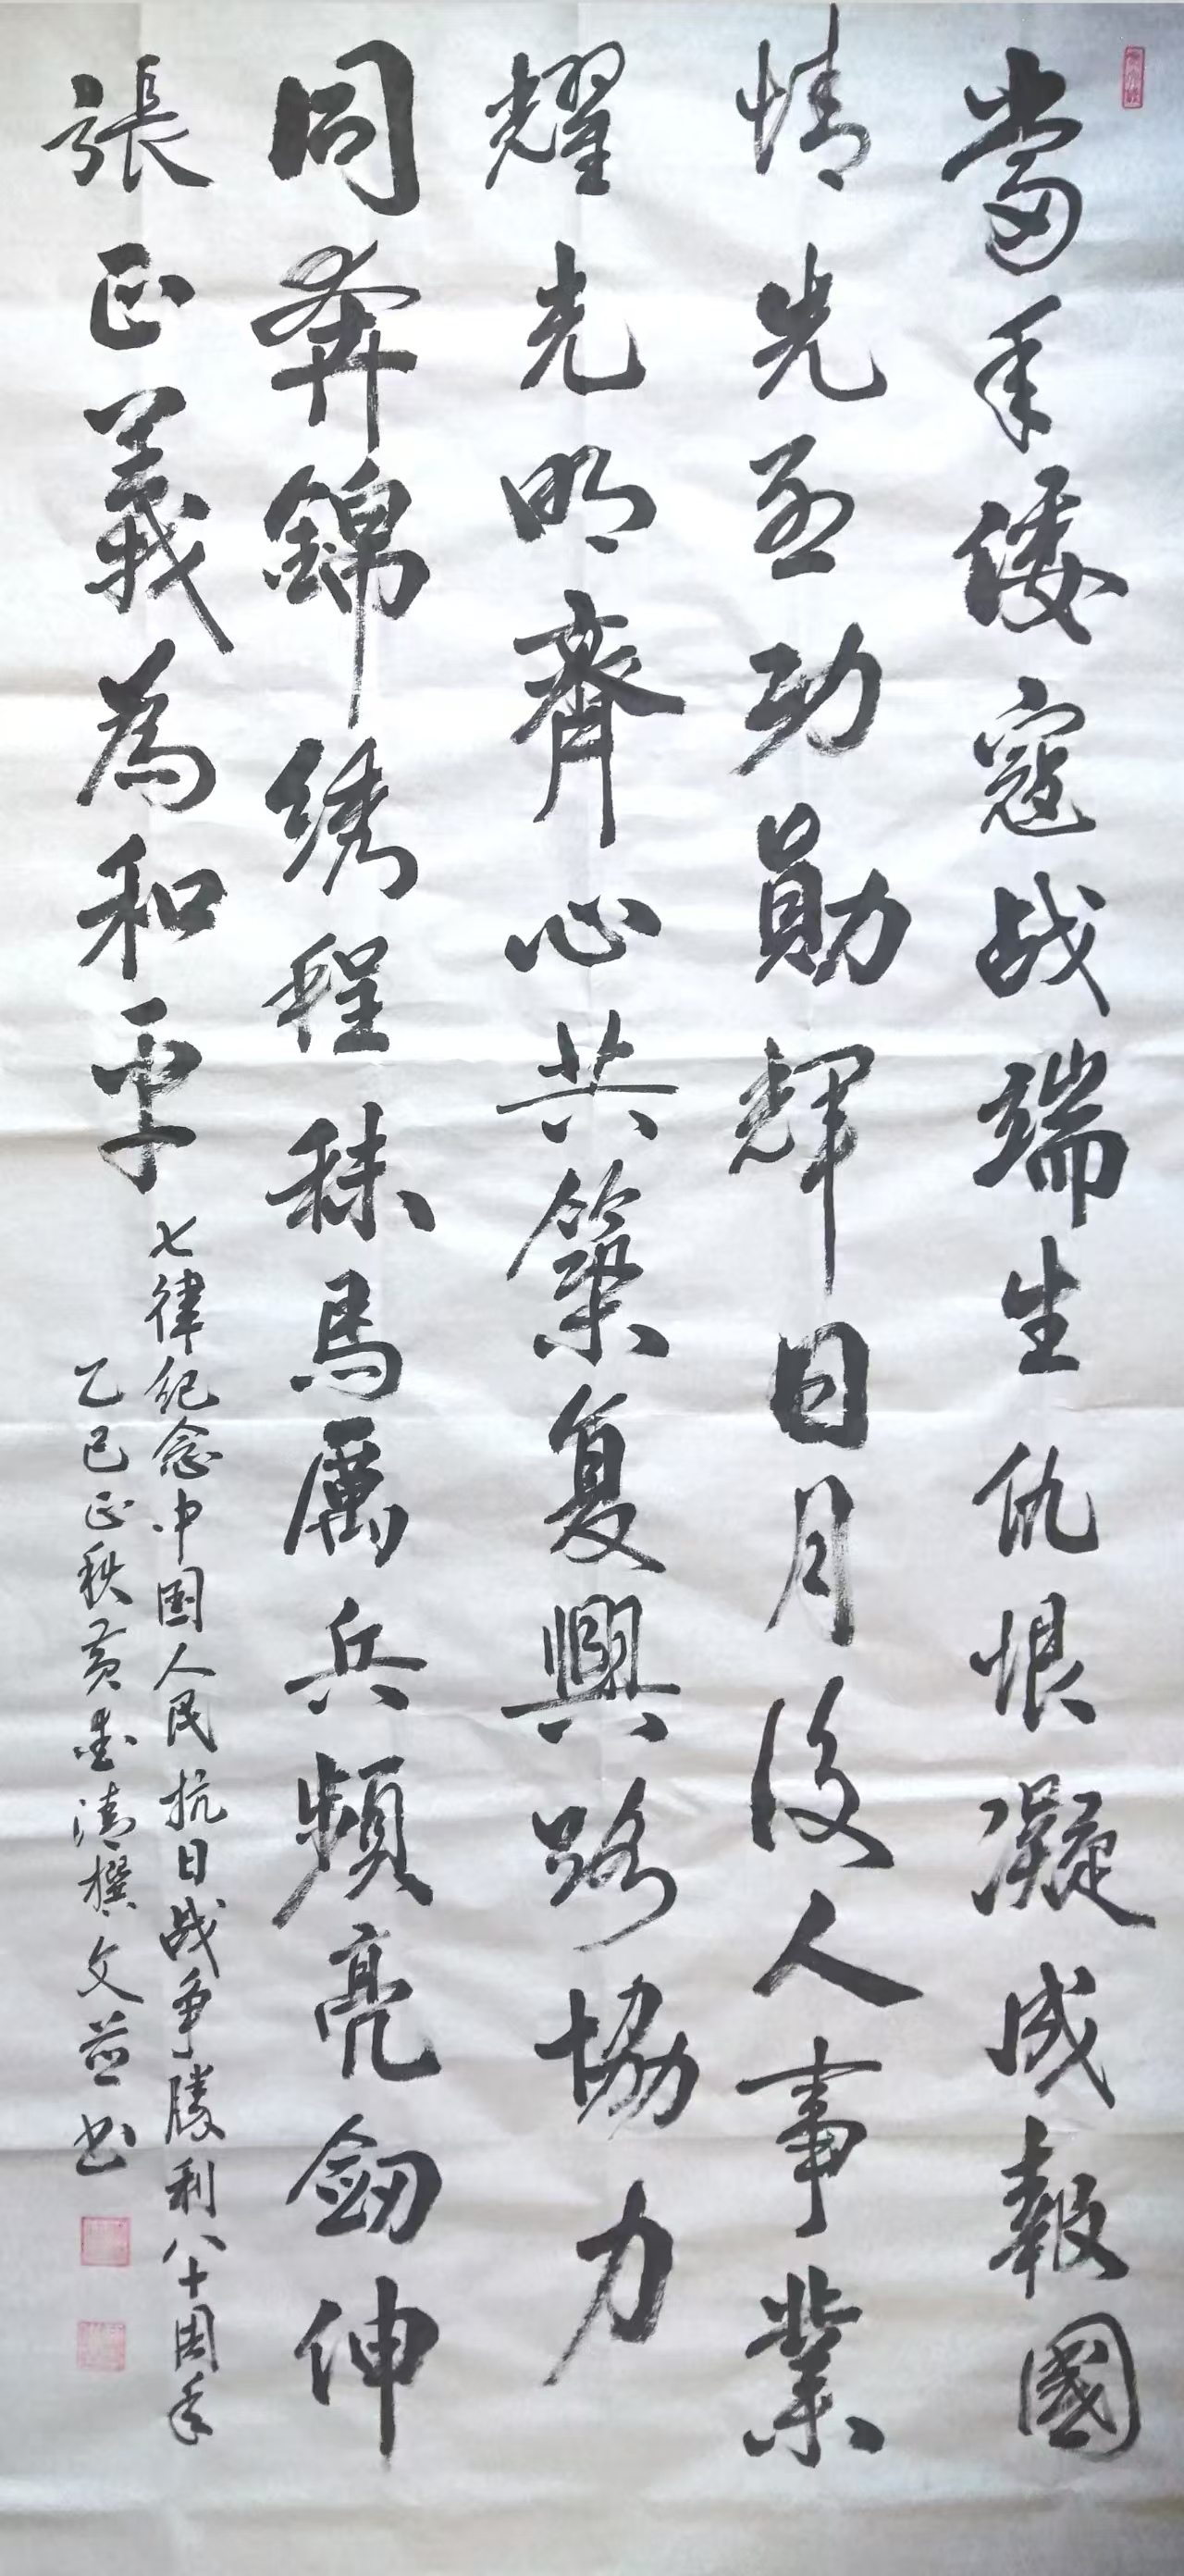 當年倭寇战端生仇恨凝成報國
情先烝功勛輝日月後人事業
耀光明齊心共築复興路協力
同奔錦绣程秣馬厲兵頻亮劒伸
張正義為和平
七律纪念中国人民抗日战争勝利八十周年
乙巳正秋黄金清撰文並书